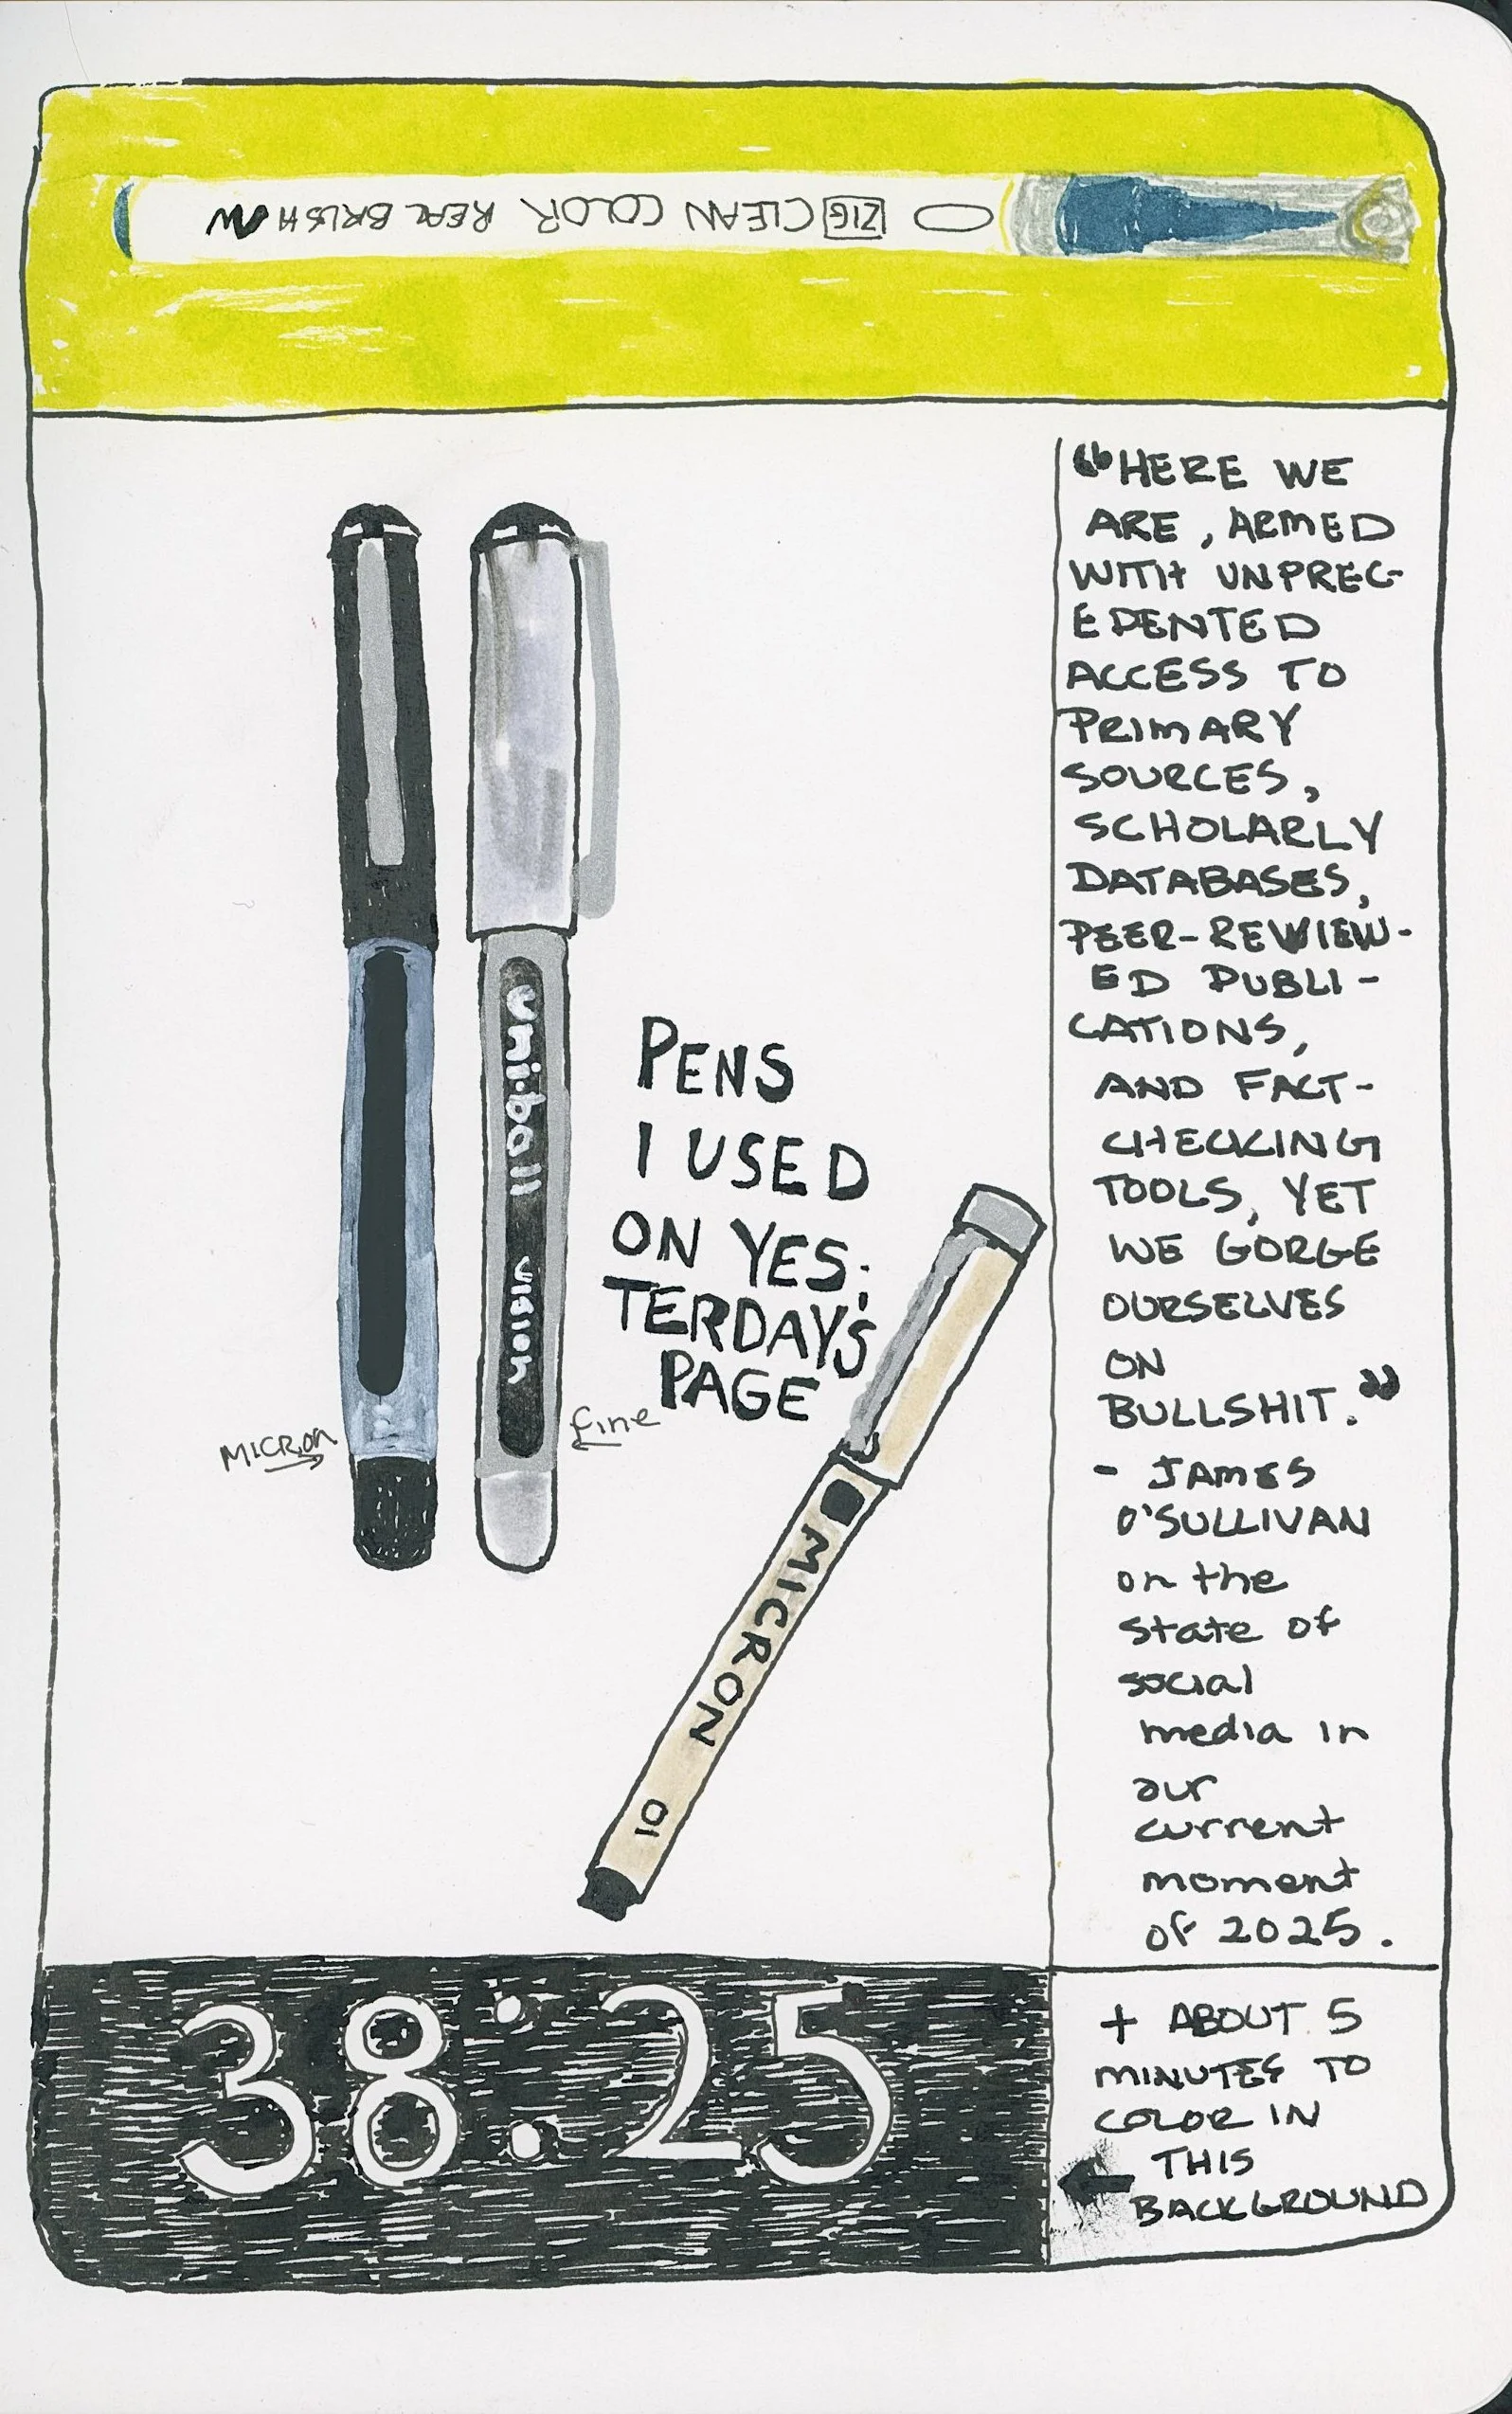 ZIG CLEAN COLOR REAL BRUSH
uniball vision
MICRON
fine
PENS
I USED
ON YES-
TERDAY'S
PAGE
MICRON 01
“HERE WE
ARE, ARMED
WITH UNPREC-
EDENTED
ACCESS TO
PRIMARY
SOURCES,
SCHOLARLY
DATABASES,
PEER-REVIEW-
ED PUBLI-
CATIONS,
AND FACT-
CHECKING
TOOLS, YET
WE GORGE
OURSELVES
ON
BULLSHIT.”
- JAMES
O'SULLIVAN
on the
state of
social
media in
our
current
moment
of 2025.
38:25
+ ABOUT 5
MINUTES TO
COLOR IN
THIS
BACKGROUND